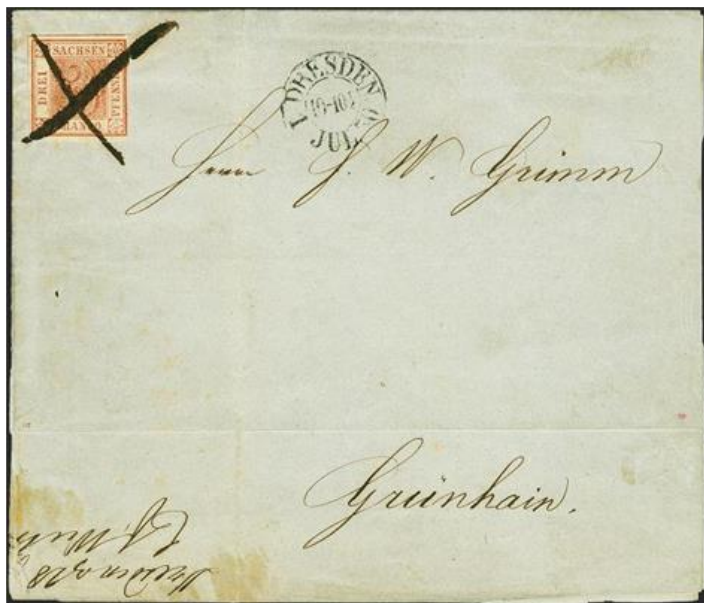 SACHSEN
DREI
3
PFENNIGE
FRANCO
DRESDEN
JUL.
Herrn F. W. Grimm
Grünhain.